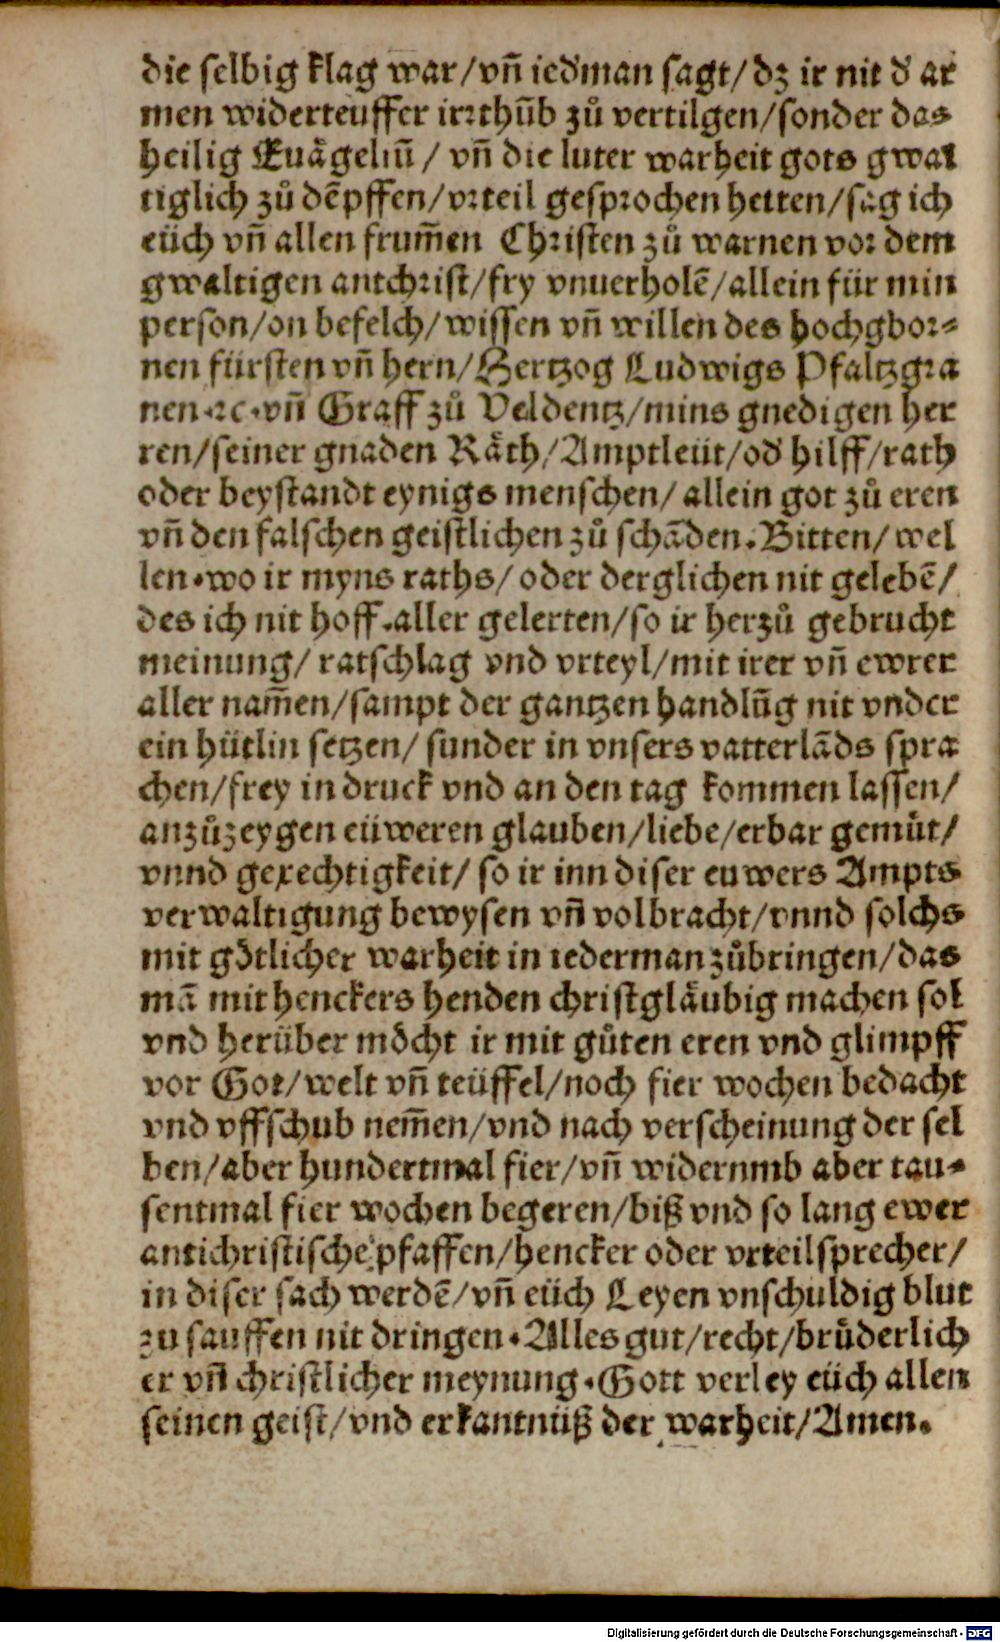 die selbig klag war/vñ iedˀman sagt/dz ir nit dˀ ar
men widerteüffer irrthūb zů vertilgen/sonder das
heilig Euāgeliū / vñ die luter warheit gots gwal
tiglich zů dēpffen/vrteil gesprochen hetten/sag ich
eüch vñ allen frum̃en Christen zů warnen vor dem
gwaltigen antchrist/fry vnuerholē/allein für min
person/on befelch/wissen vñ willen des hochgbor⸗
nen fürsten vñ hern/Hertzog Ludwigs Pfaltzgra
uen.ꝛc.vñ Graff zů Veldentz/mins gnedigen her
ren/seiner gnaden Räth/Amptleüt/odˀ hilff/rath
oder beystandt eynigs menschen/ allein got zů eren
vñ den falschen geistlichen zů schāden. Bitten/ wel
len.wo ir myns raths/ oder derglichen nit gelebē/
des ich nit hoff.aller gelerten/so ir herzů gebrucht
meinung/ ratschlag vnd vrteyl/mit irer vñ ewrer
aller nam̃en/sampt der gantzen handlūg nit vnder
ein hütlin setzen/ sunder in vnsers vatterlāds spra
chen/frey in druck vnd an den tag kommen lassen/
anzůzeygen eüweren glauben/liebe/erbar gemüt/
vnnd gerechtigkeit/ so ir inn diser euwers Ampts
verwaltigung bewysen vñ volbracht/vnnd solchs
mit götlicher warheit in iederman zůbringen/das
mā mit henckers henden christgläubig machen sol
vnd herüber möcht ir mit gůten eren vnd glimpff
vor Got/welt vñ teüffel/noch fier wochen bedacht
vnd vffschub nem̃en/vnd nach verscheinung der sel
ben/aber hundertmal fier/vñ widernmb aber tau⸗
sentmal fier wochen begeren/biß vnd so lang ewer
antichristische pfaffen/hencker oder vrteilsprecher/
in diser sach werdē/vñ eüch Leyen vnschuldig blut
zu sauffen nit dringen. Alles gut/recht/brüderlich
er vñ christlicher meynung. Gott verley eüch allen
seinen geist/vnd erkantnüß der warheit/Amen.
Digitalisierung gefördert durch die Deutsche Forschungsgemeinschaft - DFG